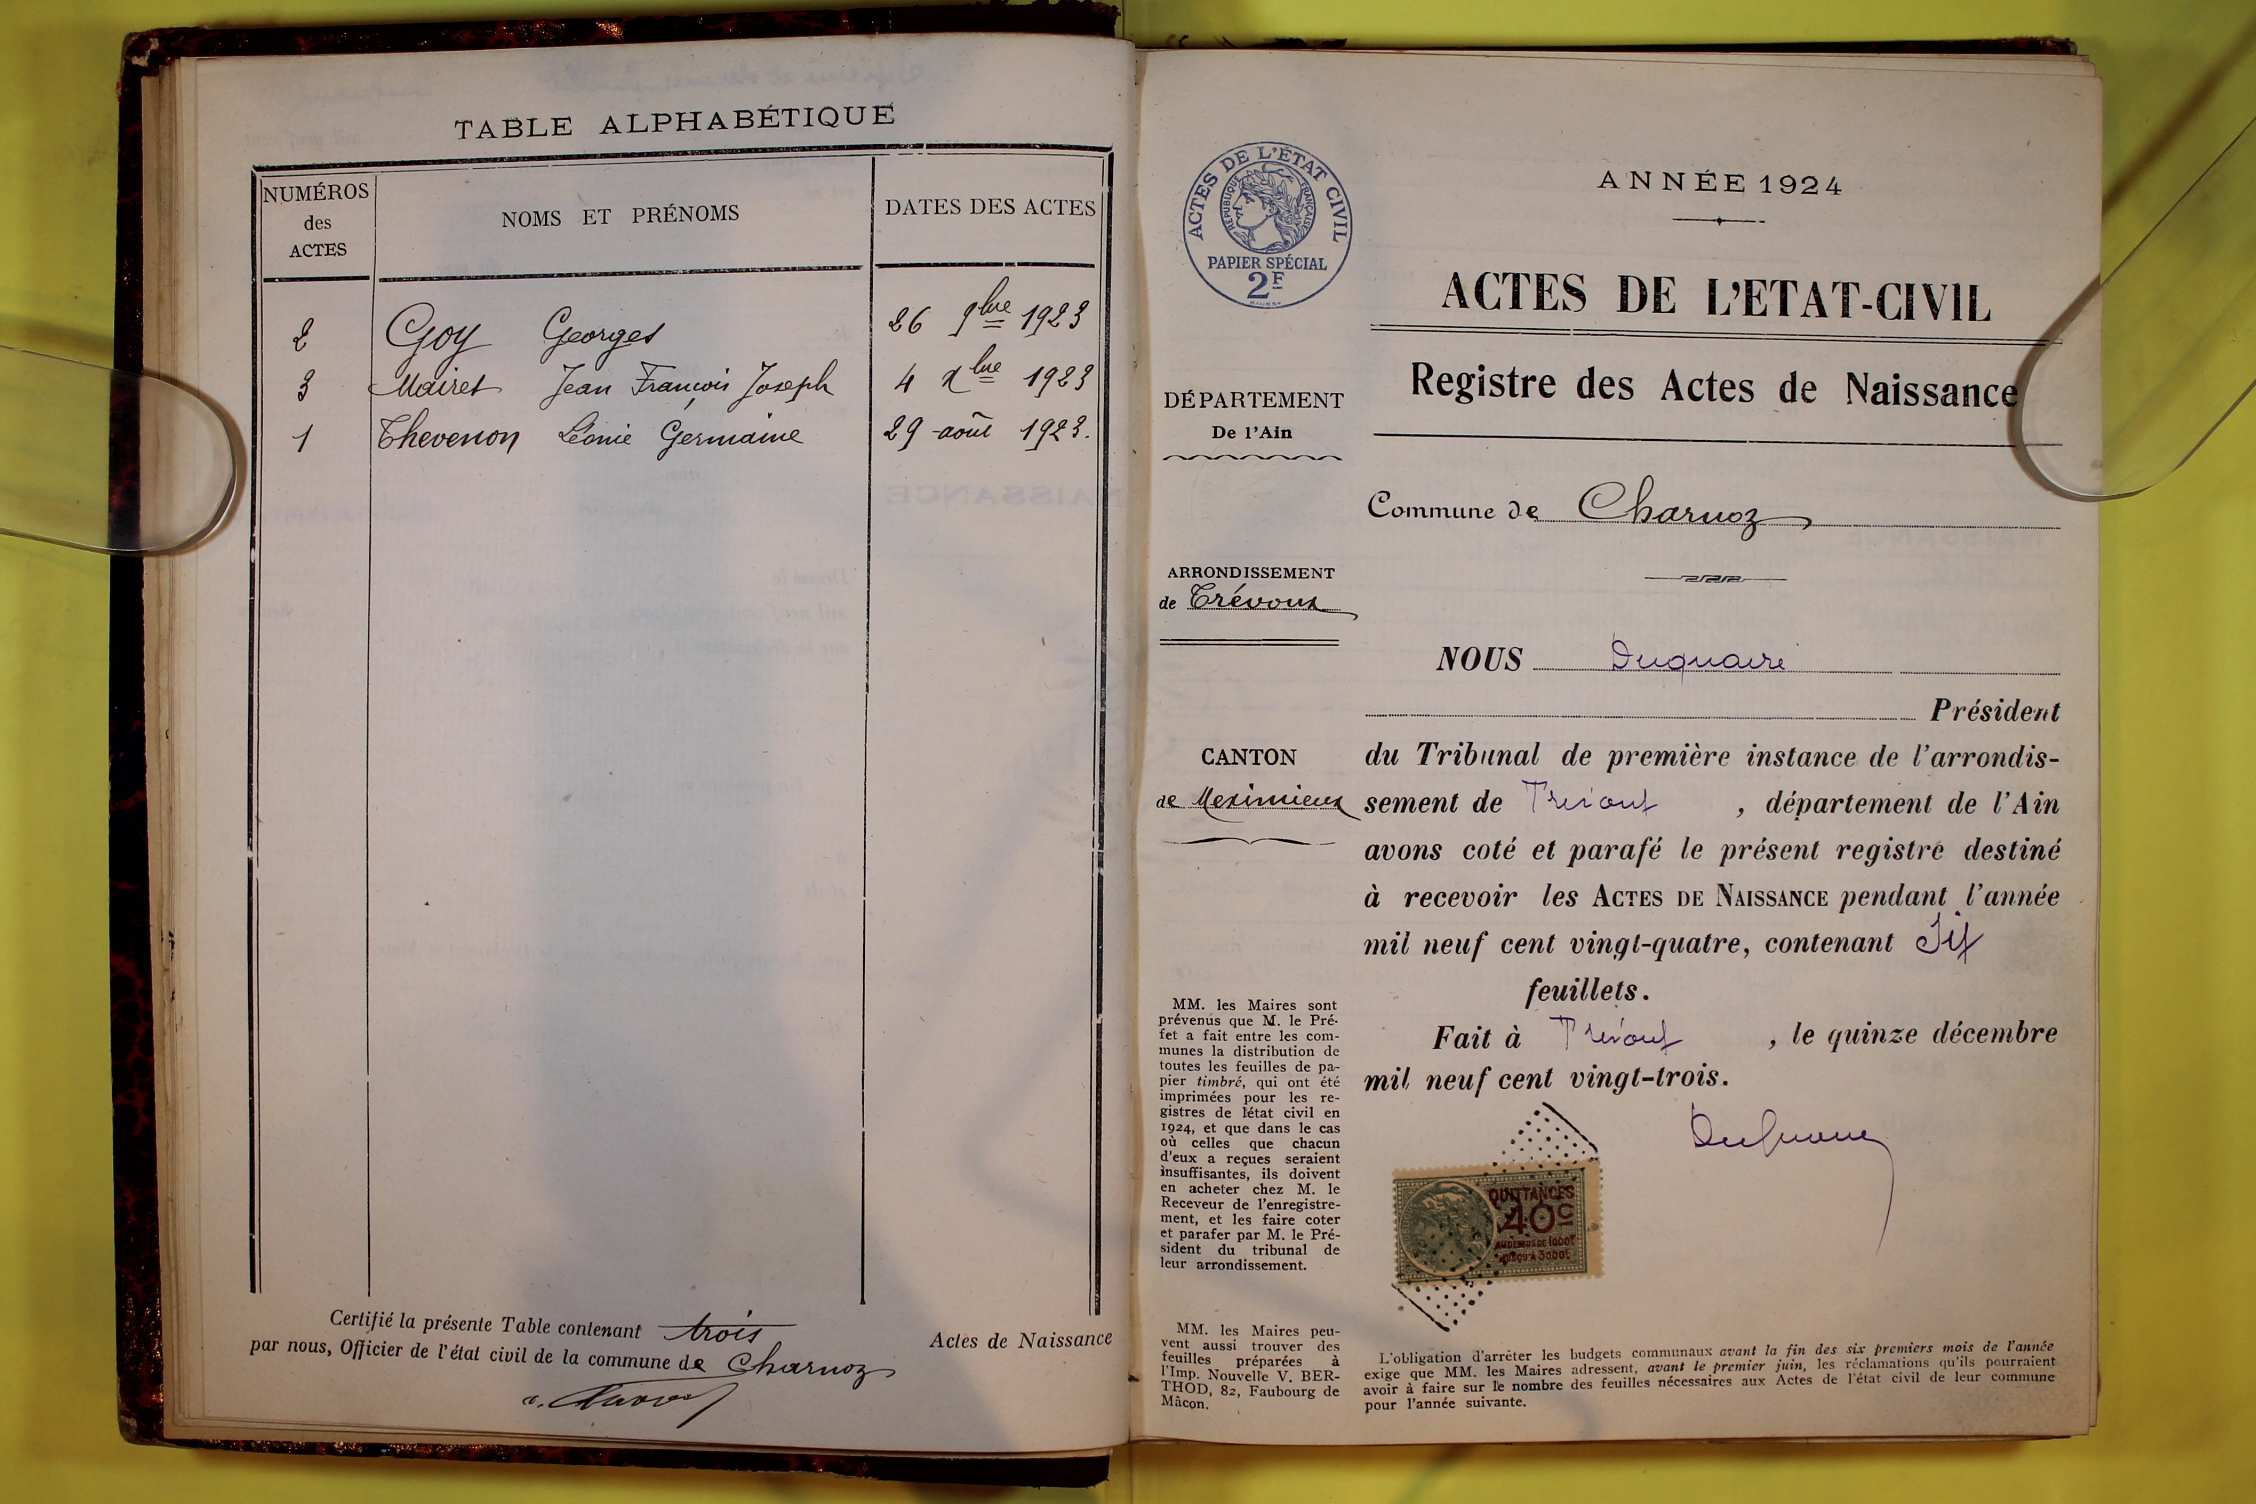 TABLE ALPHABÉTIQUE
NUMÉROS
des
ACTES
NOMS ET PRÉNOMS
DATES DES ACTES
2 Goy Georges 26 9bre 1923
3 Mairet Jean François Joseph 4 Xbre 1923
1 Thevenon Léonie Germaine 29 août 1923.
Certifié la présente Table contenant trois
Actes de Naissance
par nous, Officier de l'état civil de la commune de Charnoz
ACTES DE L'ÉTAT CIVIL
RÉPUBLIQUE FRANÇAISE
PAPIER SPÉCIAL
2F
DÉPARTEMENT
De l'Ain
ARRONDISSEMENT
de Trévoux
CANTON
de Meximieux
MM. les Maires sont
prévenus que M. le Pré-
fet a fait entre les com-
munes la distribution de
toutes les feuilles de pa-
pier timbré, qui ont été
imprimées pour les re-
gistres de l'état civil en
1924, et que dans le cas
où celles que chacun
d'eux a reçues seraient
insuffisantes, ils doivent
en acheter chez M. le
Receveur de l'enregistre-
ment, et les faire coter
et parafer par M. le Pré-
sident du tribunal de
leur arrondissement.
MM. les Maires peu-
vent aussi trouver des
feuilles préparées à
l'Imp. Nouvelle V. BER-
THOD, 82, Faubourg de
Mâcon.
ANNÉE 1924
ACTES DE L'ETAT-CIVIL
Registre des Actes de Naissance
Commune de Charnoz
NOUS Duquaire
Président
du Tribunal de première instance de l'arrondis-
sement de Trévoux, département de l'Ain
avons coté et parafé le présent registre destiné
à recevoir les ACTES DE NAISSANCE pendant l'année
mil neuf cent vingt-quatre, contenant Six
feuillets.
Fait à Trévoux, le quinze décembre
mil neuf cent vingt-trois.
Duquaire
QUITTANCES
40c
AU DESSUS DE 1000F
JUSQU'A 3000F
L'obligation d'arrêter les budgets communaux avant la fin des six premiers mois de l'année
exige que MM. les Maires adressent, avant le premier juin, les réclamations qu'ils pourraient
avoir à faire sur le nombre des feuilles nécessaires aux Actes de l'état civil de leur commune
pour l'année suivante.